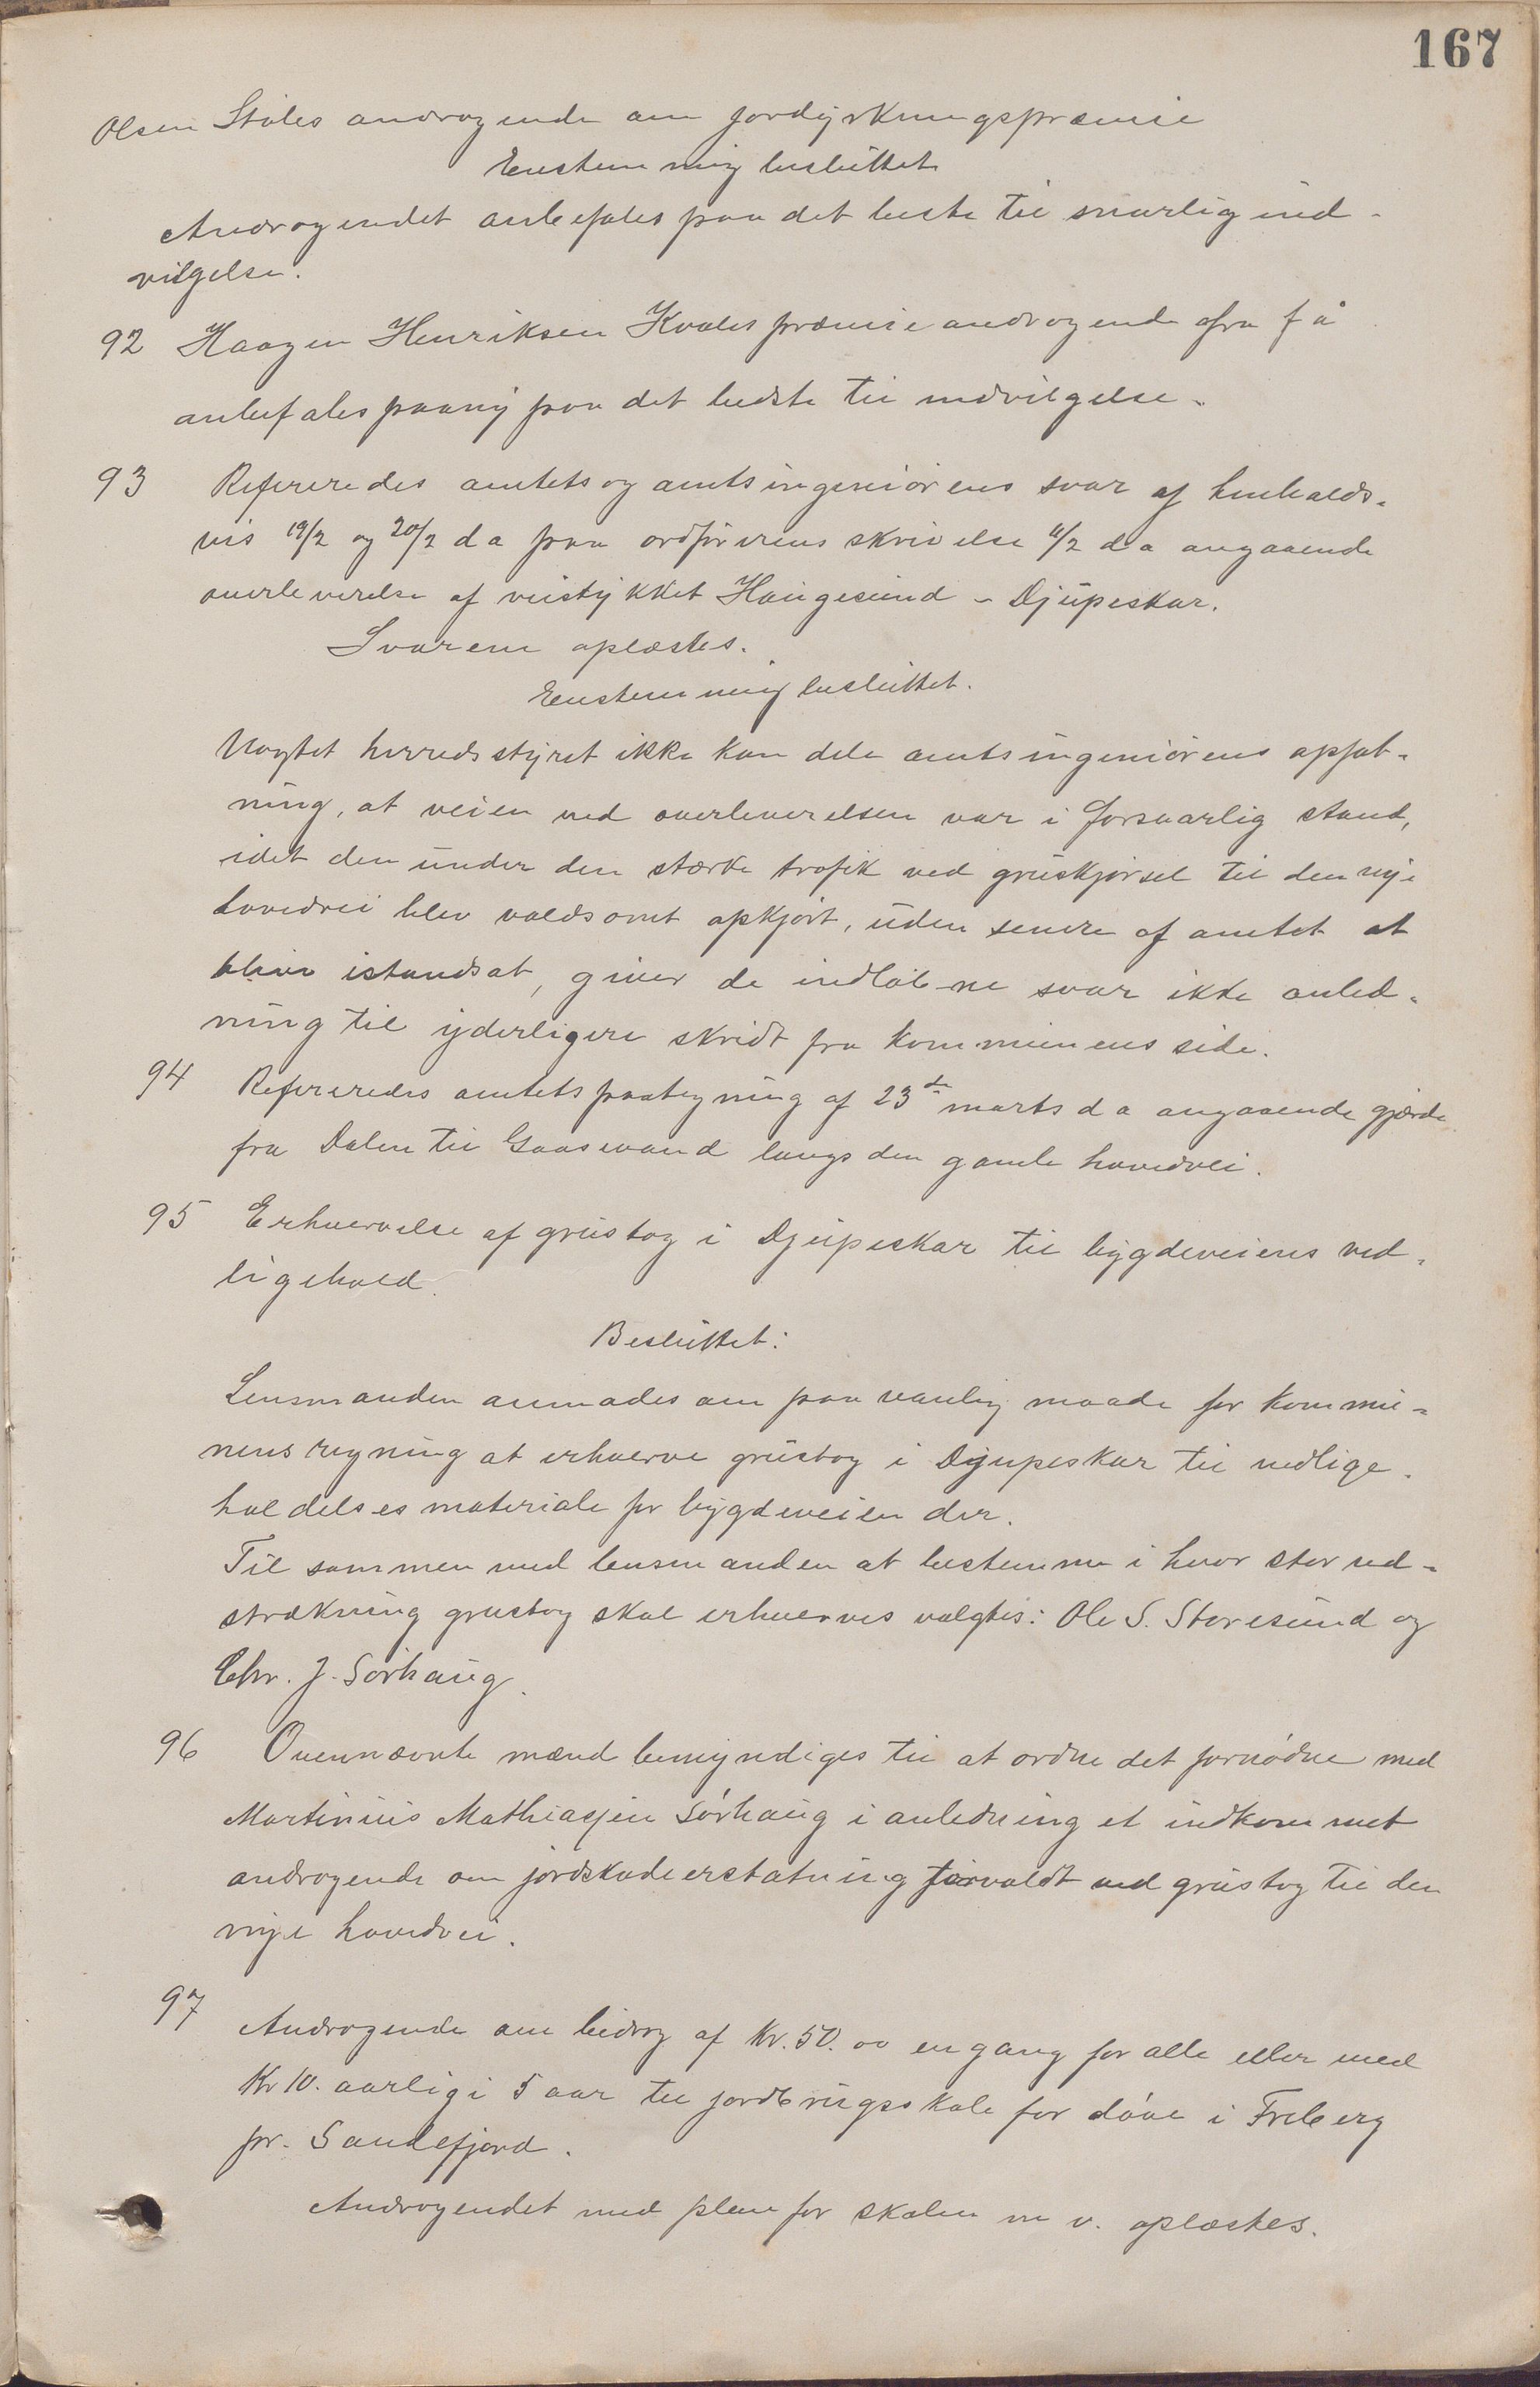 167
Olsen Stoles andragende om jordyrkningspræmie
Enstemmig besluttet
Andragendet anbefales paa det beste til snarlig ind-
vilgelse.
92 Haagen Henriksen Kvales præmieandragende fra f å
anbefales paany paa det bedste til indvilgelse.
93 Refereredes amtets og amtsingeniørens svar af henholds-
vis 19/2 og 20/2 d a paa ordførerens skrivelse 11/2 d a angaaende
overleverelse af veistykket Haugesund - Djupeskar.
Svarene oplæstes.
Enstemmig besluttet.
Uagtet herredsstyret ikke kan dele amtsingeniørens opfat-
ning, at veien ved overleverelsen var i forsvarlig stand,
idet den under den stærke trafik ved gruskjørsel til den nye
hovedvei blev voldsomt opkjørt, uden senere af amtet at
blive istandsat, giver de indløbne svar ikke anled-
ning til yderligere skridt fra kommunens side.
94 Refereredes amtets paategning af 23de marts d a angaaende gjærde
fra Dalen til Gaasevand langs den gamle hovedvei.
95 Erhvervelse af grustag i Djupeskar til bygdeveiens ved-
ligehold.
Besluttet:
Lensmanden anmodes om paa vanlig maade for kommu-
nens regning at erhverve grustag i Djupeskar til vedlige-
holdelsesmateriale for bygdeveien der.
Til sammen med lensmanden at bestemme i hvor stor ud-
strækning grustag skal erhverves valgtes: Ole S. Storesund og
Chr. J. Sørhaug.
96 Ovennævnte mænd bemyndiges til at ordne det fornødne med
Martinius Mathiassen Sørhaug i anledning et indkommet
andragende om jordskadeerstatning forvoldt ved grustag til den
nye hovedvei.
97 Andragende om bidrag af Kr. 50.00 en gang for alle eller med
Kr 10. aarlig i 5 aar til jordbrugsskole for døve i Freberg
pr. Sandefjord.
Andragendet med plan for skolen m v. oplæstes.